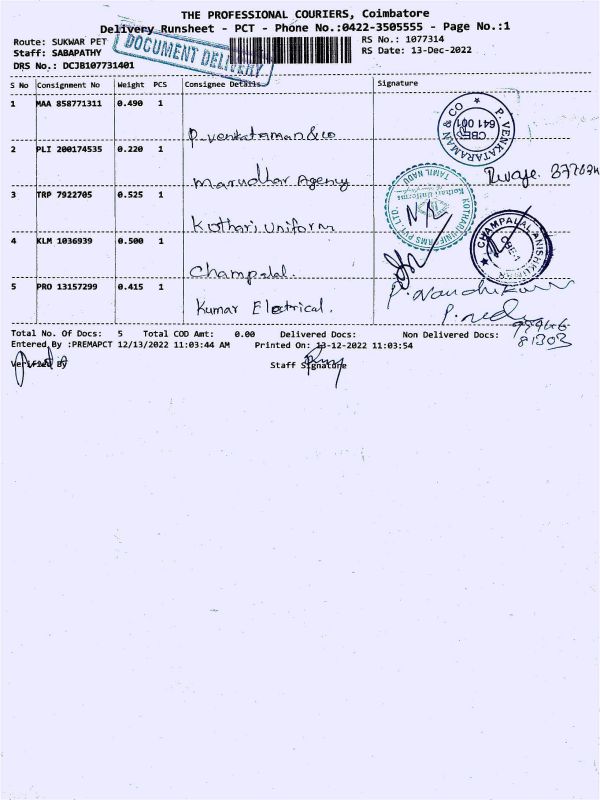 THE PROFESSIONAL COURIERS, Coimbatore
Delivery Runsheet - PCT - Phone No.:0422-3505555 - Page No.:1
Route: SUKWAR PET
RS No.: 1077314
Staff: SABAPATHY
RS Date: 13-Dec-2022
DRS No.: DCJB107731401
DOCUMENT DELIVERY
S No Consignment No Weight PCS Consignee Details Signature
1 MAA 858771311 0.490 1
P. Venkataraman & co
P. VENKATARAMAN & CO
CBE
641 001
2 PLI 200174535 0.220 1
Marudhar Agency
3 TRP 7922705 0.525 1
Kothari Uniform
KOTHARI UNIFORMS PVT. LTD.
TAMIL NADU
Kothari Uniforms
4 KLM 1036939 0.500 1
Champalal.
CHAMPALAL ANISH KUMAR
5 PRO 13157299 0.415 1
Kumar Electrical.
Total No. Of Docs: 5 Total COD Amt: 0.00 Delivered Docs: Non Delivered Docs:
81303
Entered By :PREMAPCT 12/13/2022 11:03:44 AM Printed On: 13-12-2022 11:03:54
Verified By Staff Signature